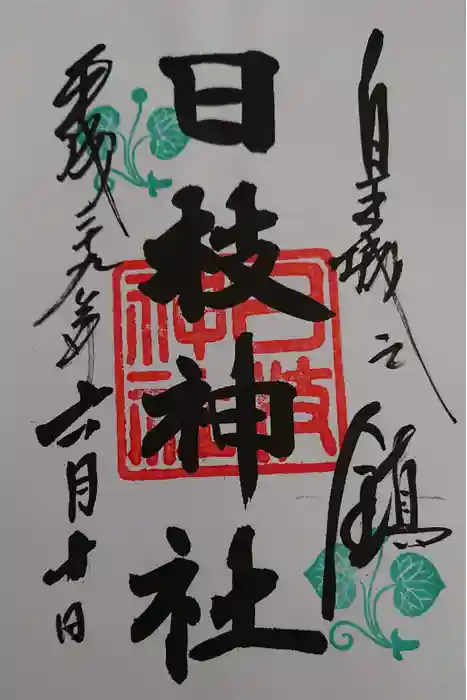 皇城之鎮
日枝神社
日枝神社
平成二十九年六月十日